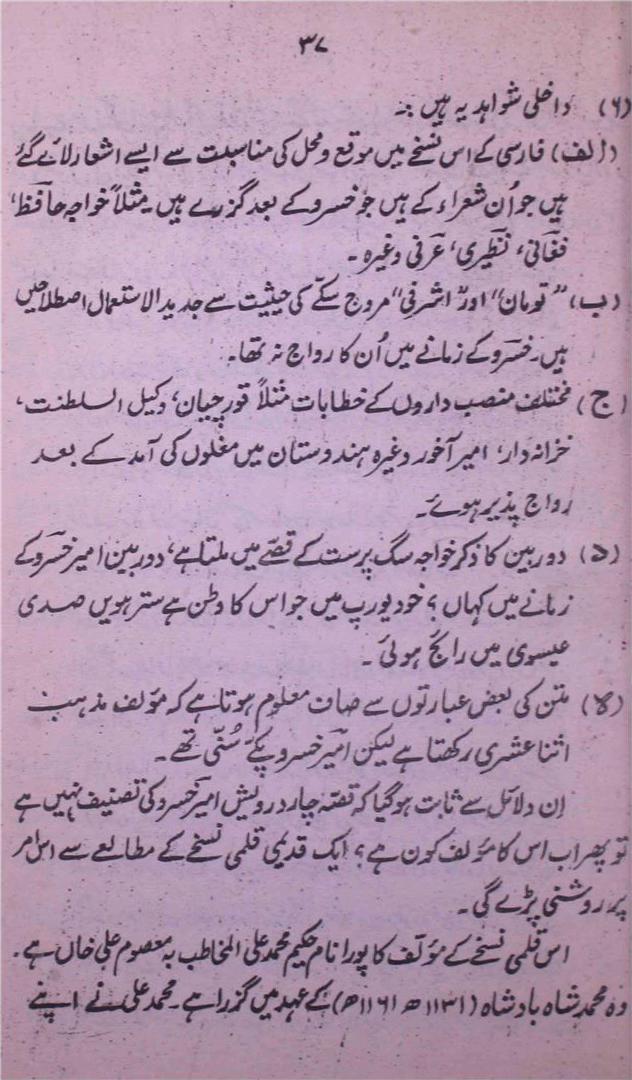 ۳۷
(۶) داخلی شواہد یہ ہیں :۔
(الف) فارسی کے اس نسخے میں موقع و محل کی مناسبت سے ایسے اشعار لائے گئے
ہیں جو اُن شعراء کے ہیں جو خسرو کے بعد گزرے ہیں۔ مثلاً خواجہ حافظ،
فغانی، نظیری، عرفی وغیرہ۔
(ب) "تومان" اور "اشرفی" مروج سکّے کی حیثیت سے جدید الاستعمال اصطلاحیں
ہیں۔ خسرو کے زمانے میں اُن کا رواج نہ تھا۔
(ج) مختلف منصب داروں کے خطابات مثلاً قورچیان، وکیل السلطنت،
خزانہ دار، امیر آخور وغیرہ ہندوستان میں مغلوں کی آمد کے بعد
رواج پذیر ہوئے۔
(د) دوربین کا ذکر خواجہ سگ پرست کے قصّے میں ملتا ہے، دوربین امیر خسرو کے
زمانے میں کہاں؟ خود یورپ میں جو اس کا وطن ہے سترہویں صدی
عیسوی میں رائج ہوئی۔
(ہ) متن کی بعض عبارتوں سے صاف معلوم ہوتا ہے کہ مؤلف مذہب
اثنا عشری رکھتا ہے لیکن امیر خسرو پکّے سُنّی تھے۔
اِن دلائل سے ثابت ہو گیا کہ قصّہ چار درویش امیر خسرو کی تصنیف نہیں ہے
تو پھر اب اس کا مؤلف کون ہے؟ ایک قدیمی قلمی نسخے کے مطالعے سے اس امر
پر روشنی پڑے گی۔
اس قلمی نسخے کے مؤلف کا پورا نام حکیم محمد علی المخاطب بہ معصوم علی خاں ہے۔
وہ محمد شاہ بادشاہ (۱۱۳۱ھ ۱۱۶۱ھ) کے عہد میں گزرا ہے۔ محمد علی نے اپنے